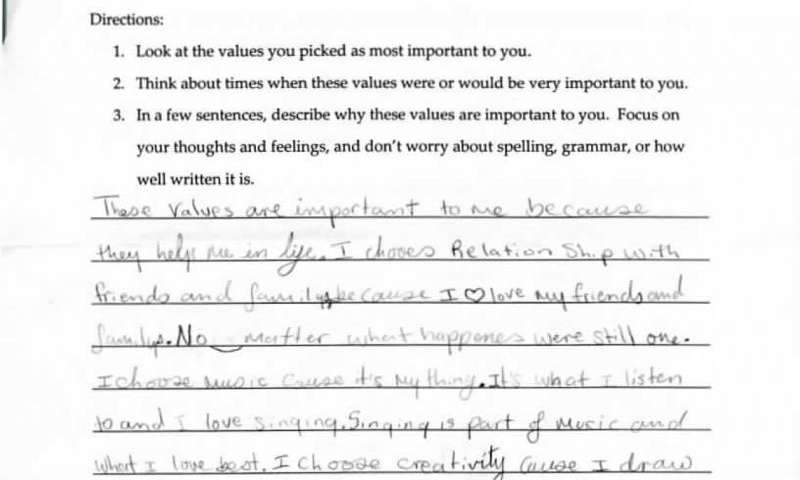 Directions:
1. Look at the values you picked as most important to you.
2. Think about times when these values were or would be very important to you.
3. In a few sentences, describe why these values are important to you. Focus on
your thoughts and feelings, and don't worry about spelling, grammar, or how
well written it is.
These values are important to me because
they help me in life. I chooes Relation Ship with
friends and family because I ♡ love my friends and
family. No matter what happenes were still one.
I choose music cause it's my thing. It's what I listen
to and I love singing. Singing is part of music and
what I love best. I choose creativity cause I draw